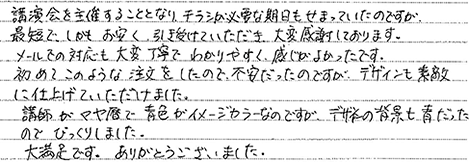 講演会を主催することとなり、チラシが必要な期日もせまっていたのですが、
最短で、しかもお安く、引き受けていただき、大変感謝しております。
メールでの対応も大変丁寧で わかりやすく、感じがよかったです。
初めてこのような注文をしたので、不安だったのですが、デザインも素敵
に仕上げていただけました。
講師がマヤ暦で青色がイメージカラーなのですが、デザインの背景も青だった
のでびっくりしました。
大満足です。ありがとうございました。